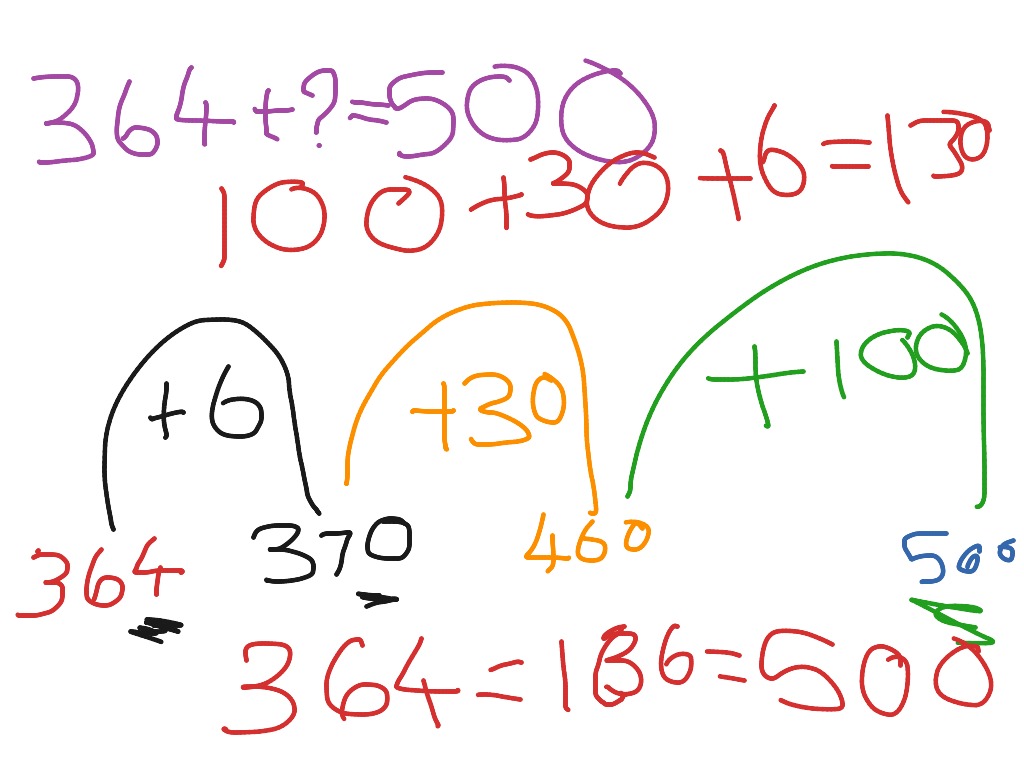 364+?=500
100+30+6=130
+6 +30 +100
364 370 460 500
364=136=500